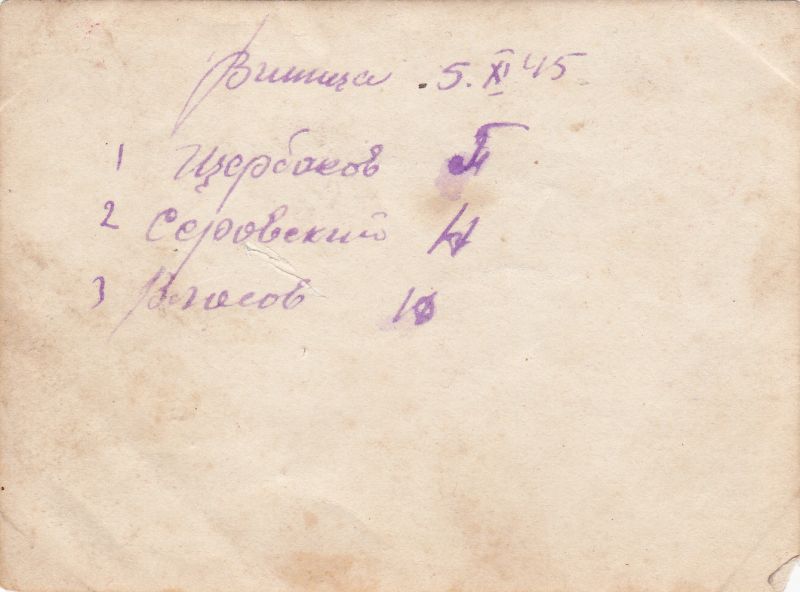 Винница 5.XI 45
1 Щербаков П
2 Серовский Н
3 Власов Ю